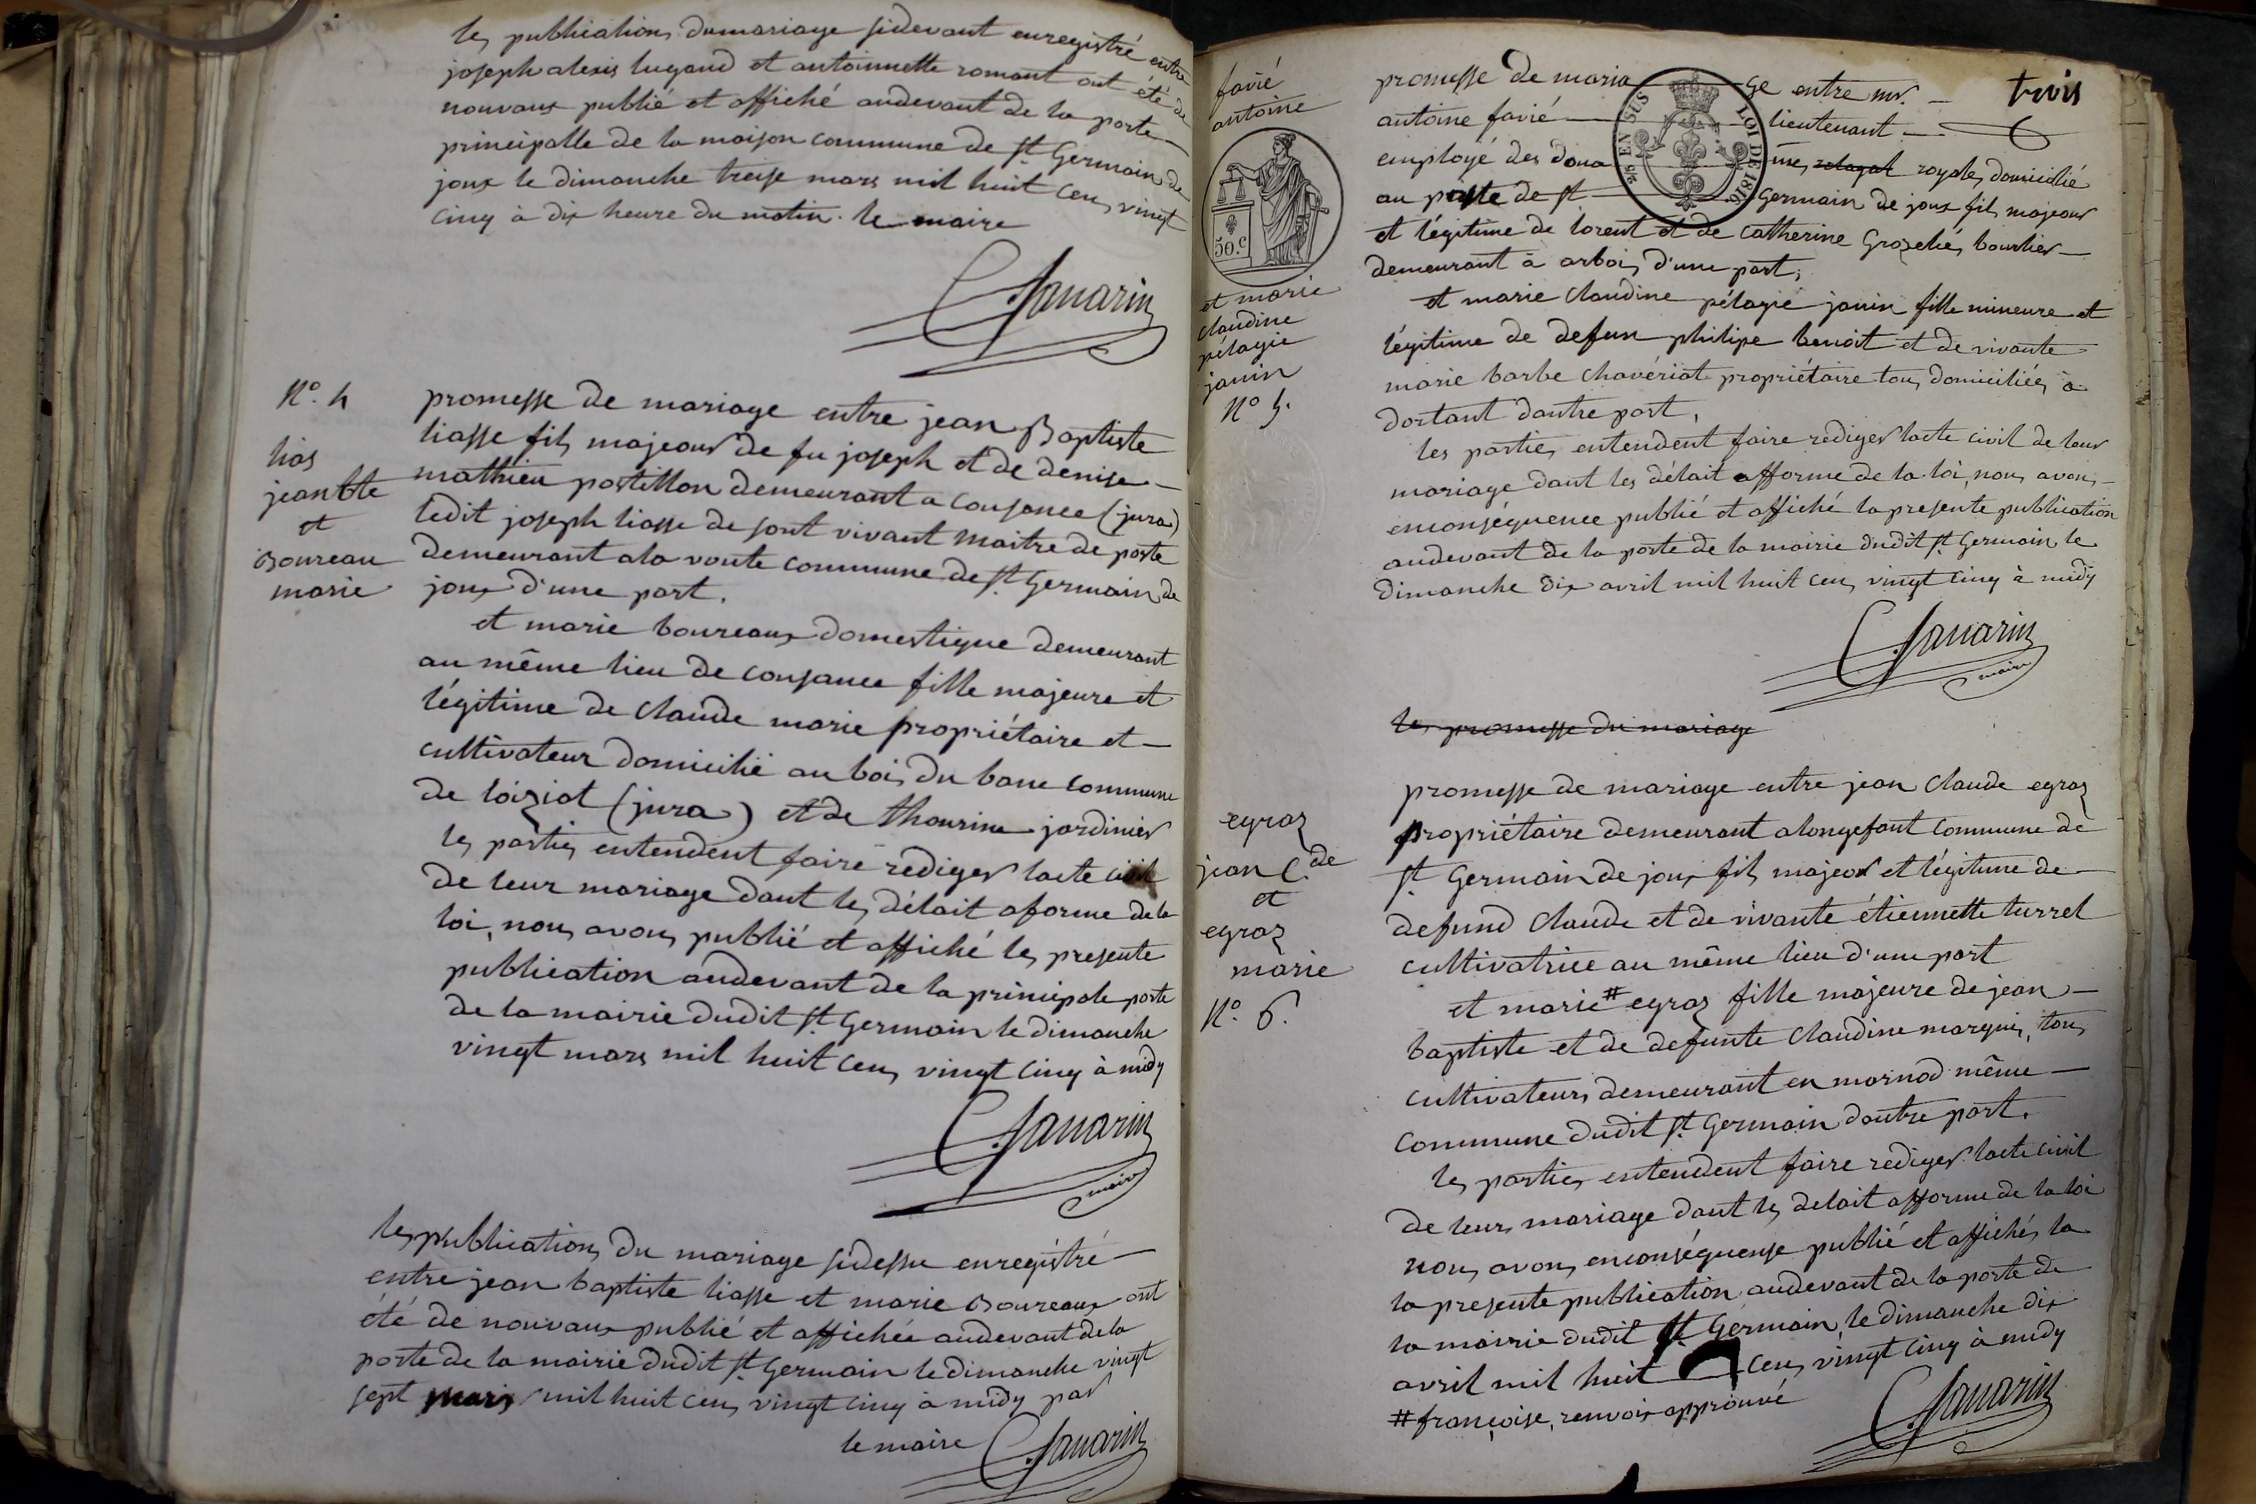 les publications dumariage sidevant enregistré entre
joseph alexis lugand et antoinnette romant ont été de
nouvaux publié et affiché audevant de la porte
principalle de la maison commune de St Germain de
joux le dimanche treise mars mil huit cens vingt
cinq à dix heure du matin. le maire
C. Savarin
N.º 4
lias
jean bte
et
Boureau
marie
promesse de mariage entre jean Baptiste
liasse fils majeour de fu joseph et de denise
mathieu postillon demeurant a Cousance (jura)
ledit joseph liasse de sont vivant maitre de poste
demeurant ala voute commune de St Germain de
joux d'une part.
et marie boureaux domestique demeurant
au même lieu de cousance fille majeure et
légitime de claude marie propriétaire et
cultivateur domicilié au bois du banc commune
de loiziat (jura) et de thourine jardinier
les parties entendent faire rediger lacte civil
de leur mariage dant les délait aforme de la
loi, nous avons publié et affiché les presente
publication audevant de la principale porte
de la mairie dudit St Germain le dimanche
vingt mars mil huit cens vingt cinq à midy
C. Savarin
maire
les publications du mariage sidessu enregistré
entre jean baptiste liasse et marie Boureaux ont
été de nouvaux publié et affichée audevant de la
porte de la mairie dudit St Germain le dimanche vingt
sept mars mil huit cens vingt cinq à midy par
le maire C. Savarin
trois
favié
antoine
50.c
et marie
claudine
pélagie
janin
Nº 5.
5/10 EN SUS
LOI DE 1816
promesse de maria ge entre mr.
antoine favié lieutenant
employé des doua ine, royales domicilié
au poste de St Germain de joux fils majeour
et légitime de lorent et de catherine Grozelié, bourlier
demeurant à arbois d'une part;
et marie claudine pélagie janin fille mineure et
légitime de defun philipe benoit et de vivante
marie barbe chavériat propriétaire tous domiciliés à
dortant dautre part,
les parties entendent faire rediger lacte civil de leur
mariage dant les délait afforme de la loi, nous avons
enconséquence publié et affiché la presente publication
audevant de la porte de la mairie dudit St Germain le
dimanche dix avril mil huit cens vingt cinq à midy
C. Savarin
maire
les promesse du mariage
egraz
jean C.de
et
egraz
marie
N.º 6.
promesse de mariage entre jean Claude egraz
propriétaire demeurant alongefant Commune de
St Germain de joux fils majeor et légitime de
defund Claude et de vivante étiennette turrel
cultivatrice au même lieu d'une part
et marie # egraz fille majeure de jean
baptiste et de defunte Claudine marquis, tous
cultivateurs demeurant en marnod même
commune dudit St Germain dautre part.
les parties entendent faire rediger lacte civil
de leurs mariage dant les delait afforme de la loi
nous avons enconséquense publié et affichés la
la presente publication audevant de la porte de
la mairie dudit St Germain, le dimanche dix
avril mil huit cens vingt cinq à midy
# françoise, renvoi approuvé
C. Savarin